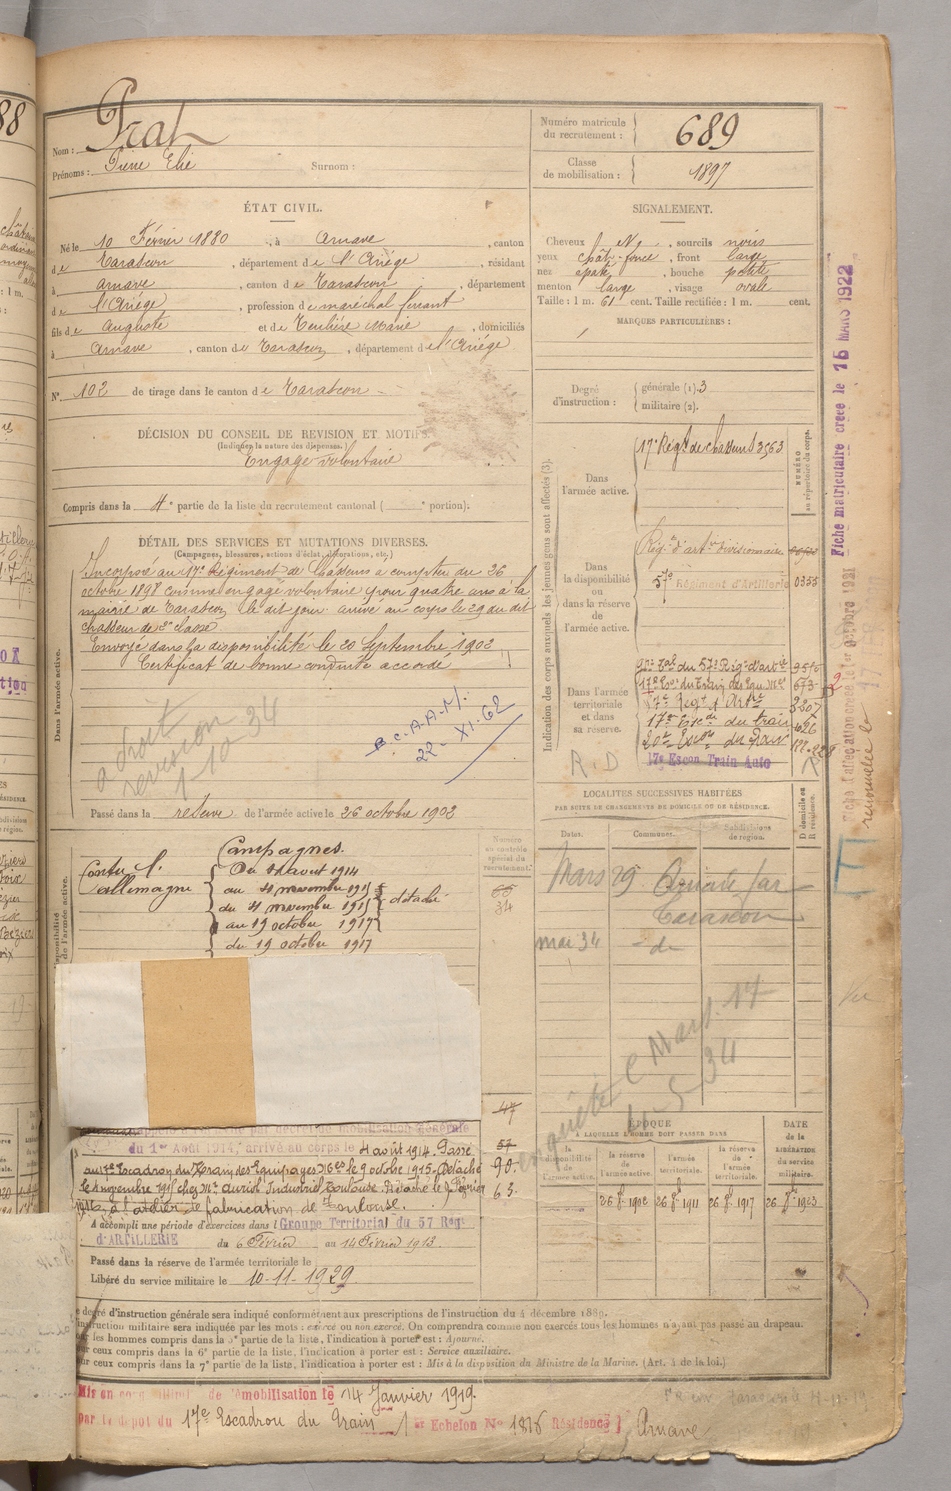 88
Prat
Nom :
Prénoms : Pierre Elie Surnom :
Numéro matricule
du recrutement : 689
Classe
de mobilisation : 1897
ÉTAT CIVIL.
Né le 10 Février 1880, à Arnave, canton
de Tarascon, département de l'Ariège, résidant
à Arnave, canton de Tarascon, département
de l'Ariège, profession de maréchal ferrant
fils de Auguste et de Marie, domiciliés
à Arnave, canton de Tarascon, département de l'Ariège
N° 102 de tirage dans le canton de Tarascon
SIGNALEMENT.
Cheveux N, sourcils noirs
yeux chât. foncé, front large
nez épaté, bouche petite
menton large, visage ovale
Taille : 1 m. 61 cent. Taille rectifiée : 1 m. cent.
MARQUES PARTICULIÈRES :
Degré
d'instruction : générale (1). 3
militaire (2).
DÉCISION DU CONSEIL DE REVISION ET MOTIFS.
(Indiquer la nature des dispenses.)
Engagé volontaire
Compris dans la 4e partie de la liste du recrutement cantonal ( e portion).
DÉTAIL DES SERVICES ET MUTATIONS DIVERSES.
(Campagnes, blessures, actions d'éclat, décorations, etc.)
Dans l'armée active.
Incorporé au 17e Régiment de Chasseurs à compter du 26
octobre 1898 comme engagé volontaire pour quatre ans à la
mairie de Tarascon le dit jour. arrivé au corps le 29 du dit
chasseur de 2e classe.
Envoyé dans la disponibilité le 20 Septembre 1902
Certificat de bonne conduite accordé
a droit
revision
1-10-34
B.C.A.A.M.
22-XI-62
Passé dans la réserve de l'armée active le 26 octobre 1902
Indication des corps auxquels les jeunes gens sont affectés (3).
NUMÉRO
au répertoire du corps.
Dans
l'armée active.
17e Régt de chasseurs 3563
Dans
la disponibilité
ou
dans la réserve
de
l'armée active.
Régt d'artie Divisionnaire
57e Régiment d'Artillerie 0355
Dans l'armée
territoriale
et dans
sa réserve.
du 57e Régt d'artie 3516
17e Esc. du Train des Equ. Mres 673
17e Regt d'Artie 3207
17e Escon du train
20e Escon du Train
17e Escon Train Auto
R.D
LOCALITÉS SUCCESSIVES HABITÉES
PAR SUITE DE CHANGEMENTS DE DOMICILE OU DE RÉSIDENCE.
Dates. Communes. Subdivisions
de région.
D domicile ou
R résidence.
Mars 29 par
Tarascon
mai 34 - d -
Campagnes.
Contre l'
allemagne
Du 4 août 1914
au 4 novembre 1915
du 4 novembre 1915 détaché
au 19 octobre 1917
du 19 octobre 1917
Numéro
au contrôle
spécial du
recrutement.
34
47
57
90.
63.
Mars. 14
34
Rappelé à l'activité par décret de mobilisation générale
du 1er Août 1914, arrivé au corps le 4 août 1914. Passé
au 17e Escadron du Train des Equipages Mres le 9 octobre 1915. Détaché
le 4 novembre 1915 chez Mr Auriol Industriel Toulouse. Détaché le 9 Février
1916, à l'atelier de fabrication de Toulouse.
A accompli une période d'exercices dans l Groupe Territorial du 57 Régt
d'ARTILLERIE du 6 Février au 14 Février 1913.
Passé dans la réserve de l'armée territoriale le
Libéré du service militaire le 10-11-1929.
ÉPOQUE
À LAQUELLE L'HOMME DOIT PASSER DANS
la disponibilité
de
l'armée active.
la réserve
de
l'armée active.
l'armée
territoriale.
la réserve
de
l'armée
territoriale.
DATE
de la
LIBÉRATION
du service
militaire.
26 8bre 1902 26 8bre 1911 26 8bre 1917 26 8bre 1923
Le degré d'instruction générale sera indiqué conformément aux prescriptions de l'instruction du 4 décembre 1889.
L'instruction militaire sera indiquée par les mots : exercé ou non exercé. On comprendra comme non exercés tous les hommes n'ayant pas passé au drapeau.
Pour les hommes compris dans la 5e partie de la liste, l'indication à porter est : Ajourné.
Pour ceux compris dans la 6e partie de la liste, l'indication à porter est : Service auxiliaire.
Pour ceux compris dans la 7e partie de la liste, l'indication à porter est : Mis à la disposition du Ministre de la Marine. (Art. 4 de la loi.)
Mis en congé illimité de démobilisation le 14 Janvier 1919
par le dépôt du 17e Escadron du Train 1er Echelon N° 1816 Résidence Arnave
Fiche matriculaire créée le 16 MARS 1922
renouvelée le